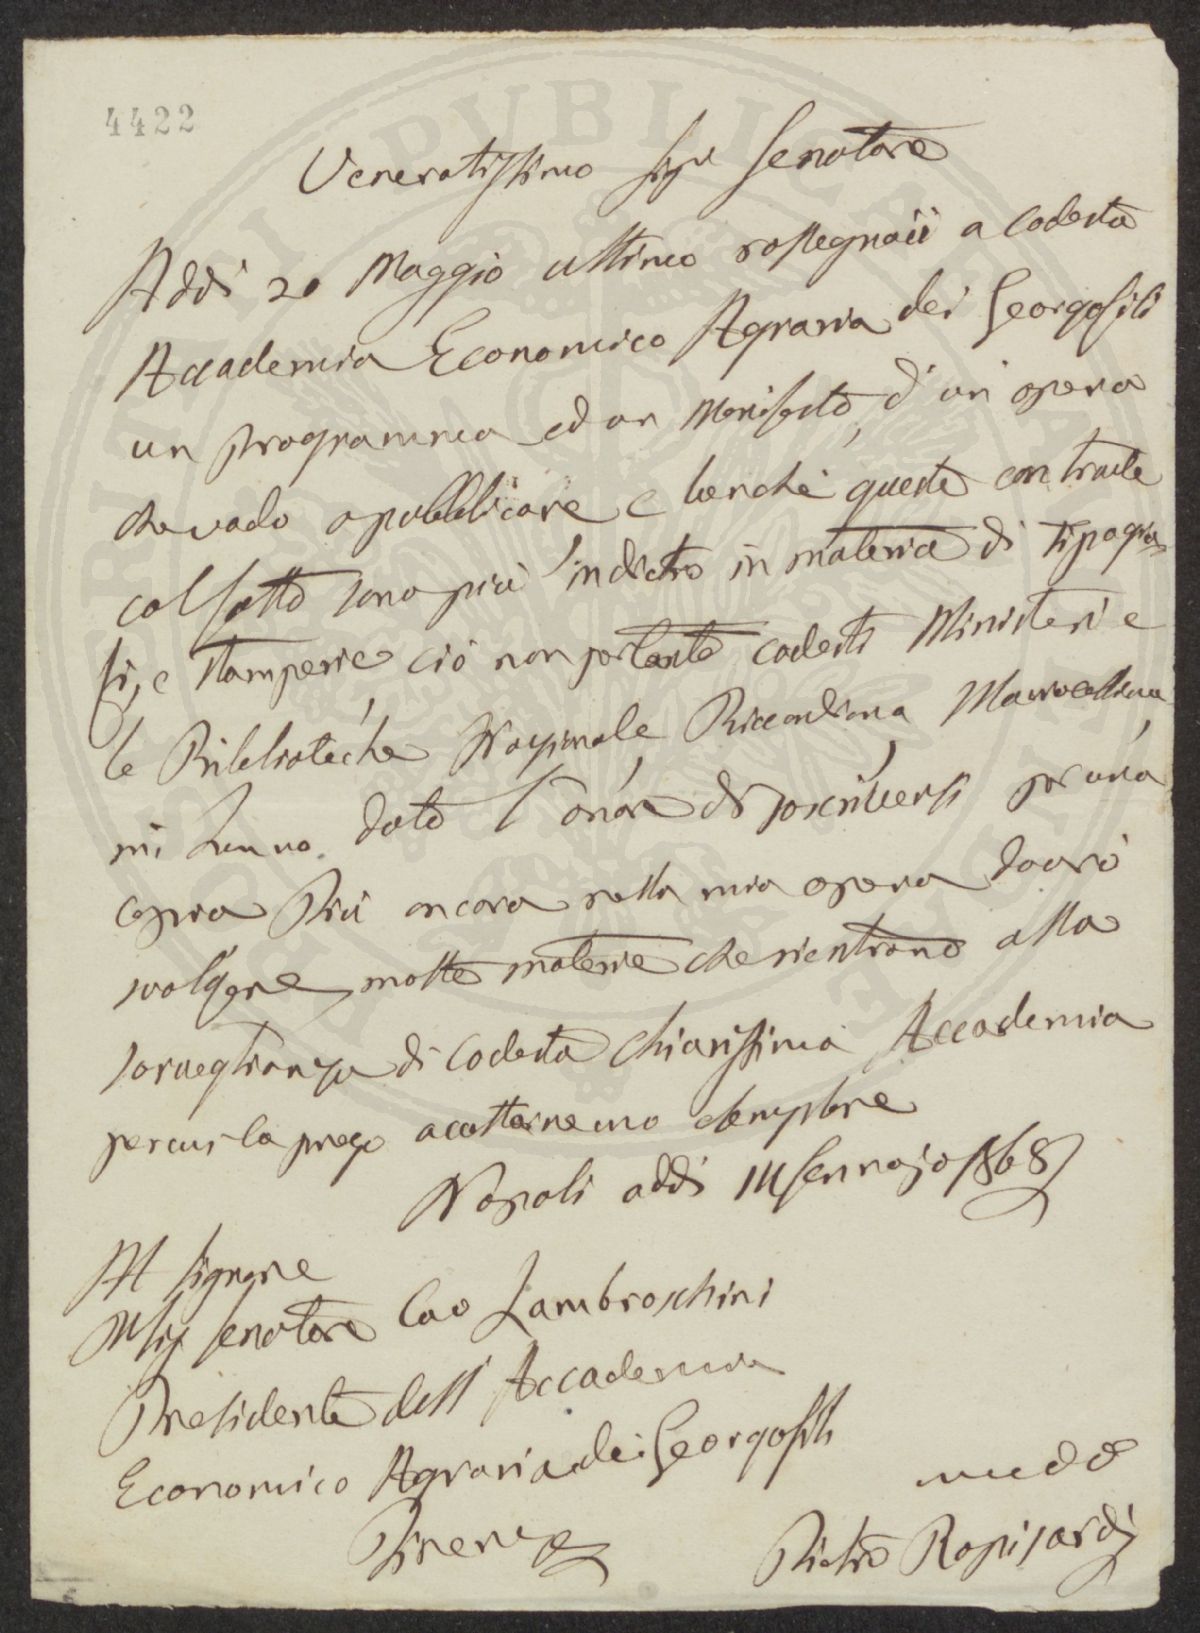 4422
Veneratissimo Sigr Senatore
Addi 20 Maggio ultimo rassegnaii a codesta
Accademia Economico Agraria dei Georgofili
un programma ed un Manifesto d'un opera
che vado a pubblicare e benchè queste contrade
col fatto sono più indietro in materia di Tipogra
fi, e stamperie ciò non pertanto codesti Ministeri e
le Biblioteche Nazionale Riccardiana Marucelliana
mi hanno dato l'onore di soscriversi per una
copia Più ancora nella mia opera dovrò
svolgere molte materie che rientrano alla
sorveglianza di codesta chiarissima Accademia
per cui la prego
Napoli addi Gennajo 1868
Al Signore
Sig Senatore Cav Lambroschini
Presidente dell Accademia
Economico Agraria dei Georgofili
Firenze
Pietro Rapisardi